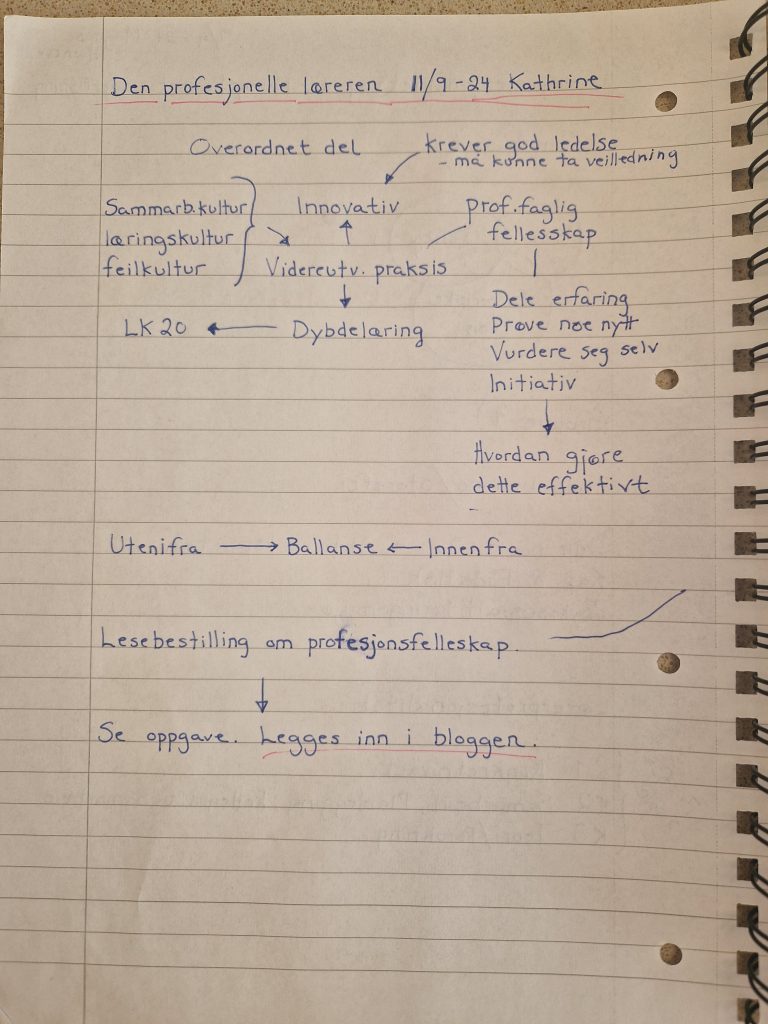 Den profesjonelle læreren 11/9-24 Kathrine
Overordnet del
krever god ledelse
- må kunne ta veilledning
Sammarb.kultur
læringskultur
feilkultur
Innovativ
Videreutv. praksis
Prof.faglig
fellesskap
LK20
Dybdelæring
Dele erfaring
Prøve noe nytt
Vurdere seg selv
Initiativ
Hvordan gjøre
dette effektivt
Utenifra → Ballanse ← Innenfra
Lesebestilling om profesjonsfelleskap.
Se oppgave. Legges inn i bloggen.